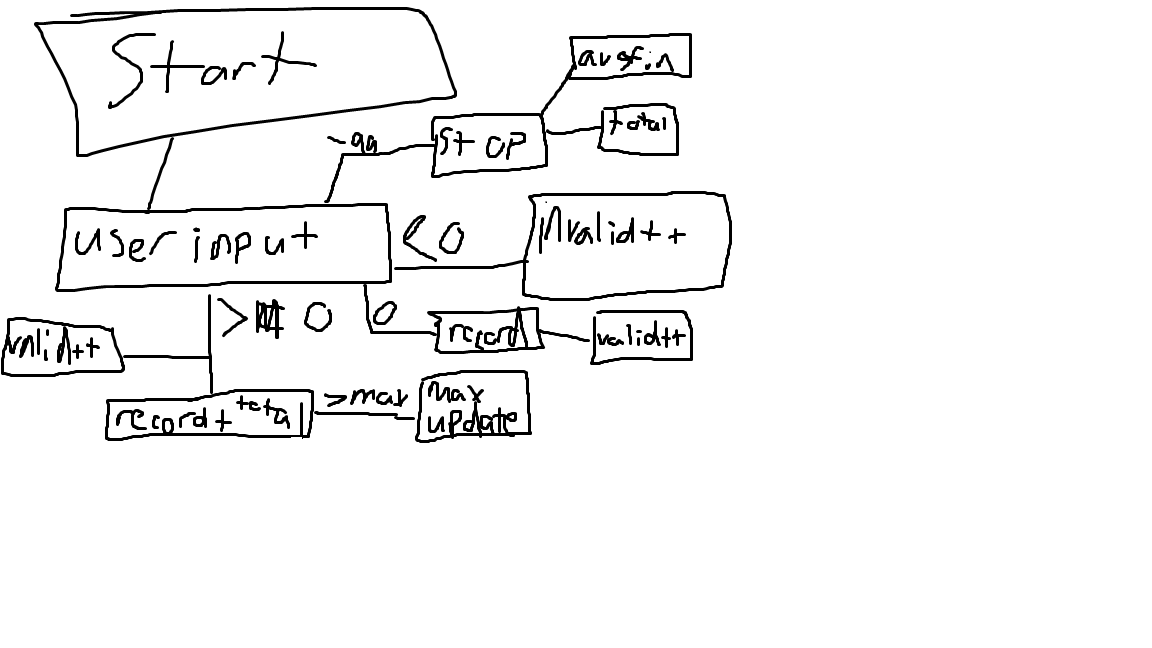 Start
avgfin
-99
STOP
total
user input
<0
Invalid++
> 0
0
record
valid++
valid++
record+ total
>max
Max
update